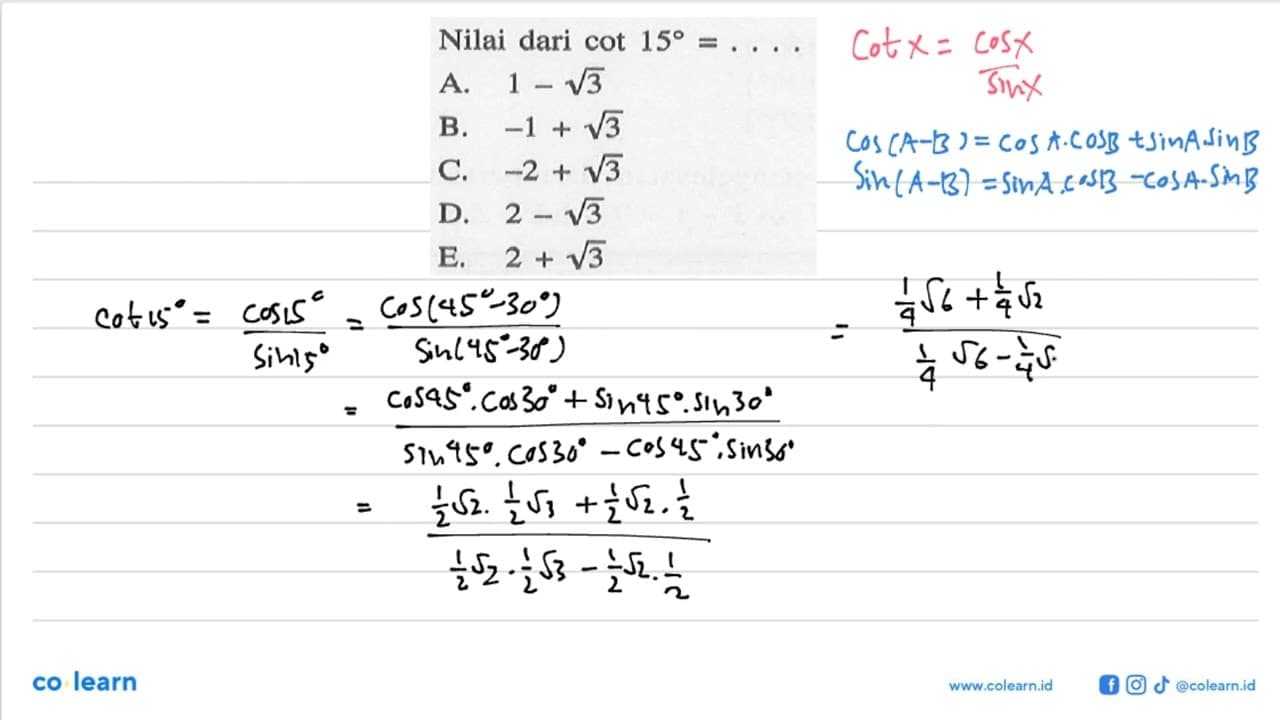 Nilai dari cot 15° = . . . .
A. 1 − √3
B. −1 + √3
C. −2 + √3
D. 2 − √3
E. 2 + √3
Cot x = cos x / sin x
Cos(A-B) = cos A.cosB + sinA sinB
Sin(A-B) = sinA.cosB - cosA.sinB
cot 15° = cos15° / sin15° = cos(45°-30°) / sin(45°-30°)
= cos45°.cos30° + sin45°.sin30° / sin45°.cos30° - cos45°.sin30°
= 1/2 √2 . 1/2 √3 + 1/2 √2 . 1/2 / 1/2 √2 . 1/2 √3 - 1/2 √2 . 1/2
= 1/4 √6 + 1/4 √2 / 1/4 √6 - 1/4 √
co learn
www.colearn.id
@colearn.id